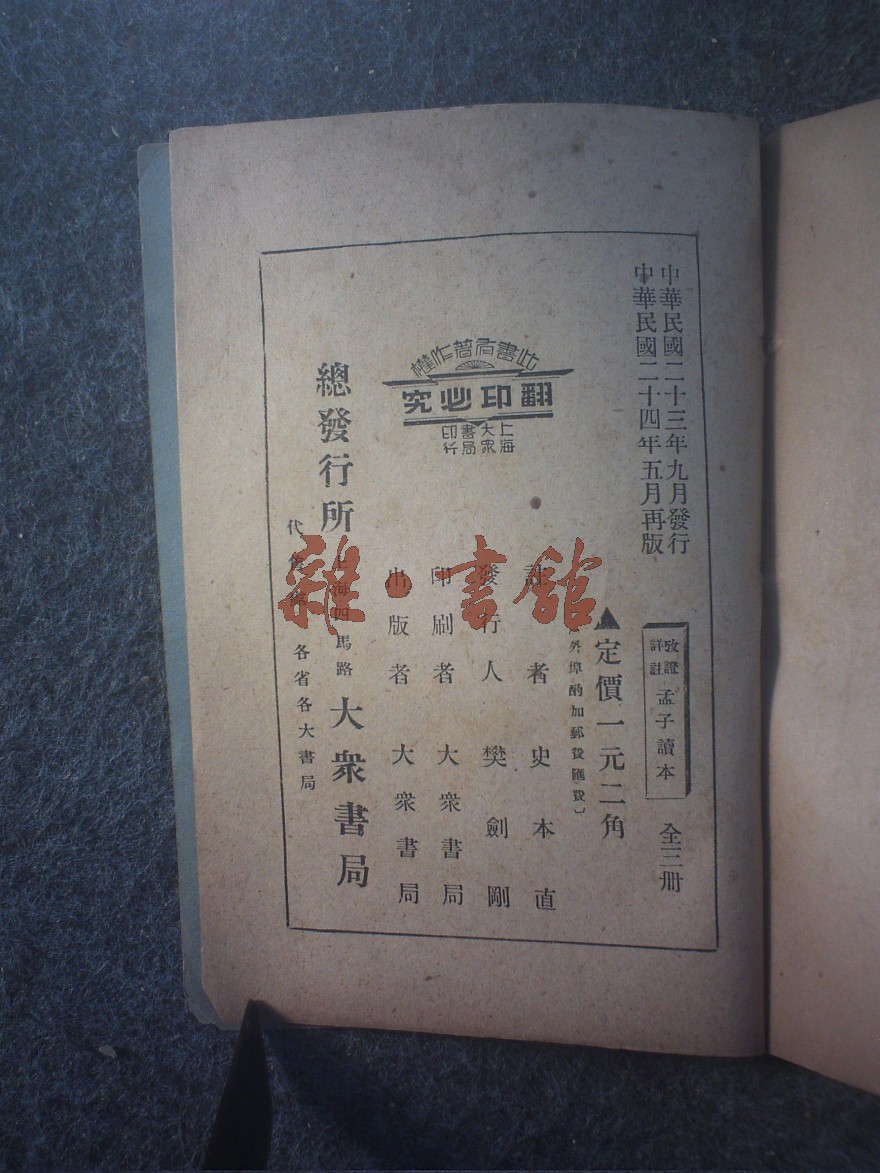 中華民國二十三年九月發行
中華民國二十四年五月再版
攷證
詳註
孟子讀本
全三册
▲定價一元二角
外埠酌加郵費匯費〕
註者 史本直
發行人 樊劍剛
印刷者 大衆書局
出版者 大衆書局
此書有著作權
翻印必究
上海
大衆
書局
印行
總發行所 上海四馬路 大衆書局
代售 各省各大書局
雜·書館